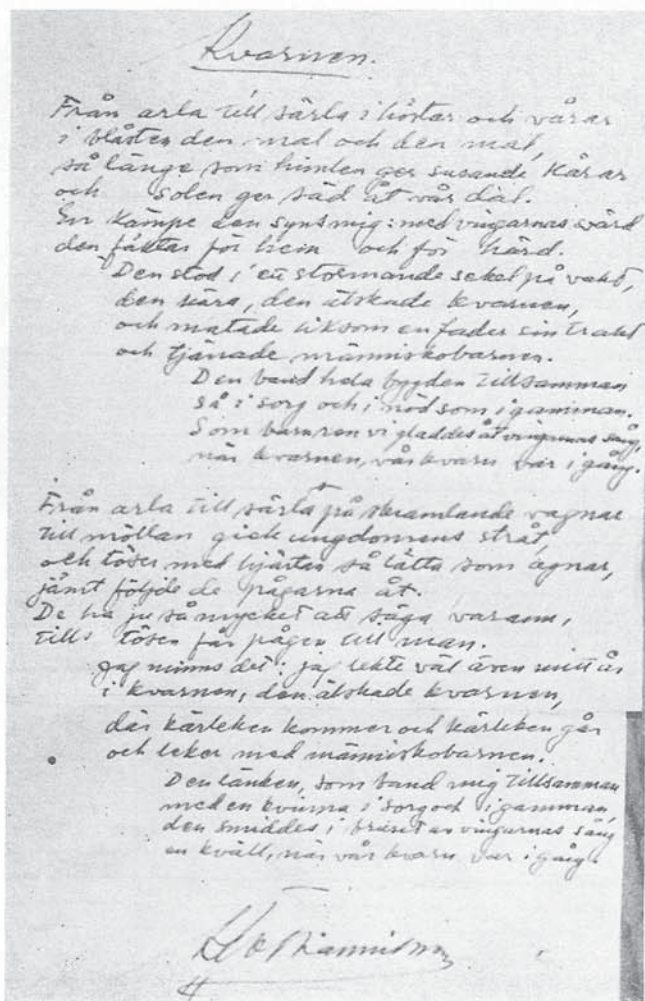 Kvarnen.
Från arla till särla i höstar och vårar
i blåsten den mal och den mal,
så länge som himlen ger susande kårar
och solen ger säd åt vår dal.
En kämpe den syns mig: med vingarnas svärd
den fäktar för hem och för härd.
Den stod i ett stormande sekel på vakt,
den kära, den älskade kvarnen,
och matade liksom en fader sin trakt
och tjänade människobarnen.
Den band hela bygden tillsamman
så i sorg och i nöd som i gamman.
Som barn ren vi gladdes åt vingarnas sång,
när kvarnen, vår kvarn var i gång.
Från arla till särla på skramlande vagnar
till möllan gick ungdomens stråt,
och töser med hjärtan så lätta som agnar,
jämt följde de pågarna åt.
De ha ju så mycket att säga varann,
tills tösen får pågen till man.
Jag minns det: jag lekte väl även mitt år
i kvarnen, den älskade kvarnen,
där kärleken kommer och kärleken går
och leker med människobarnen.
Den länken, som band mig tillsamman
med en kvinna i sorg och i gamman,
den smiddes i bruset av vingarnas sång
en kväll, när vår kvarn var i gång.